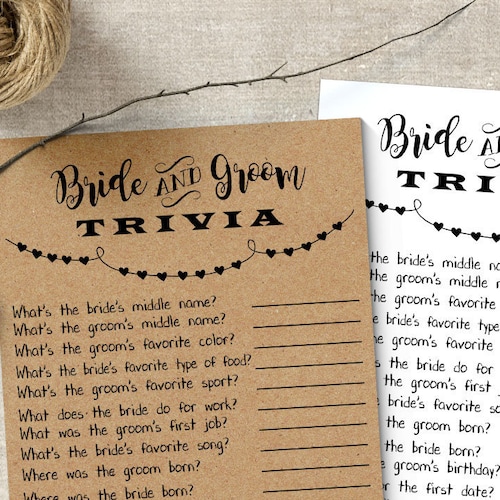 Bride AND Groom
TRIVIA
What's the bride's middle name?
What's the groom's middle name?
What's the groom's favorite color?
What's the bride's favorite type of food?
What's the groom's favorite sport?
What does the bride do for work?
What was the groom's first job?
What's the bride's favorite song?
Where was the groom born?
Where was the bride born?
Bride
TRI
the bride's middle
the groom's middle
groom's favorite
bride's favorite type
groom's favorite
the bride do for
the groom's first
bride's favorite
the groom born?
the bride born?
groom's birthday?
the first date?